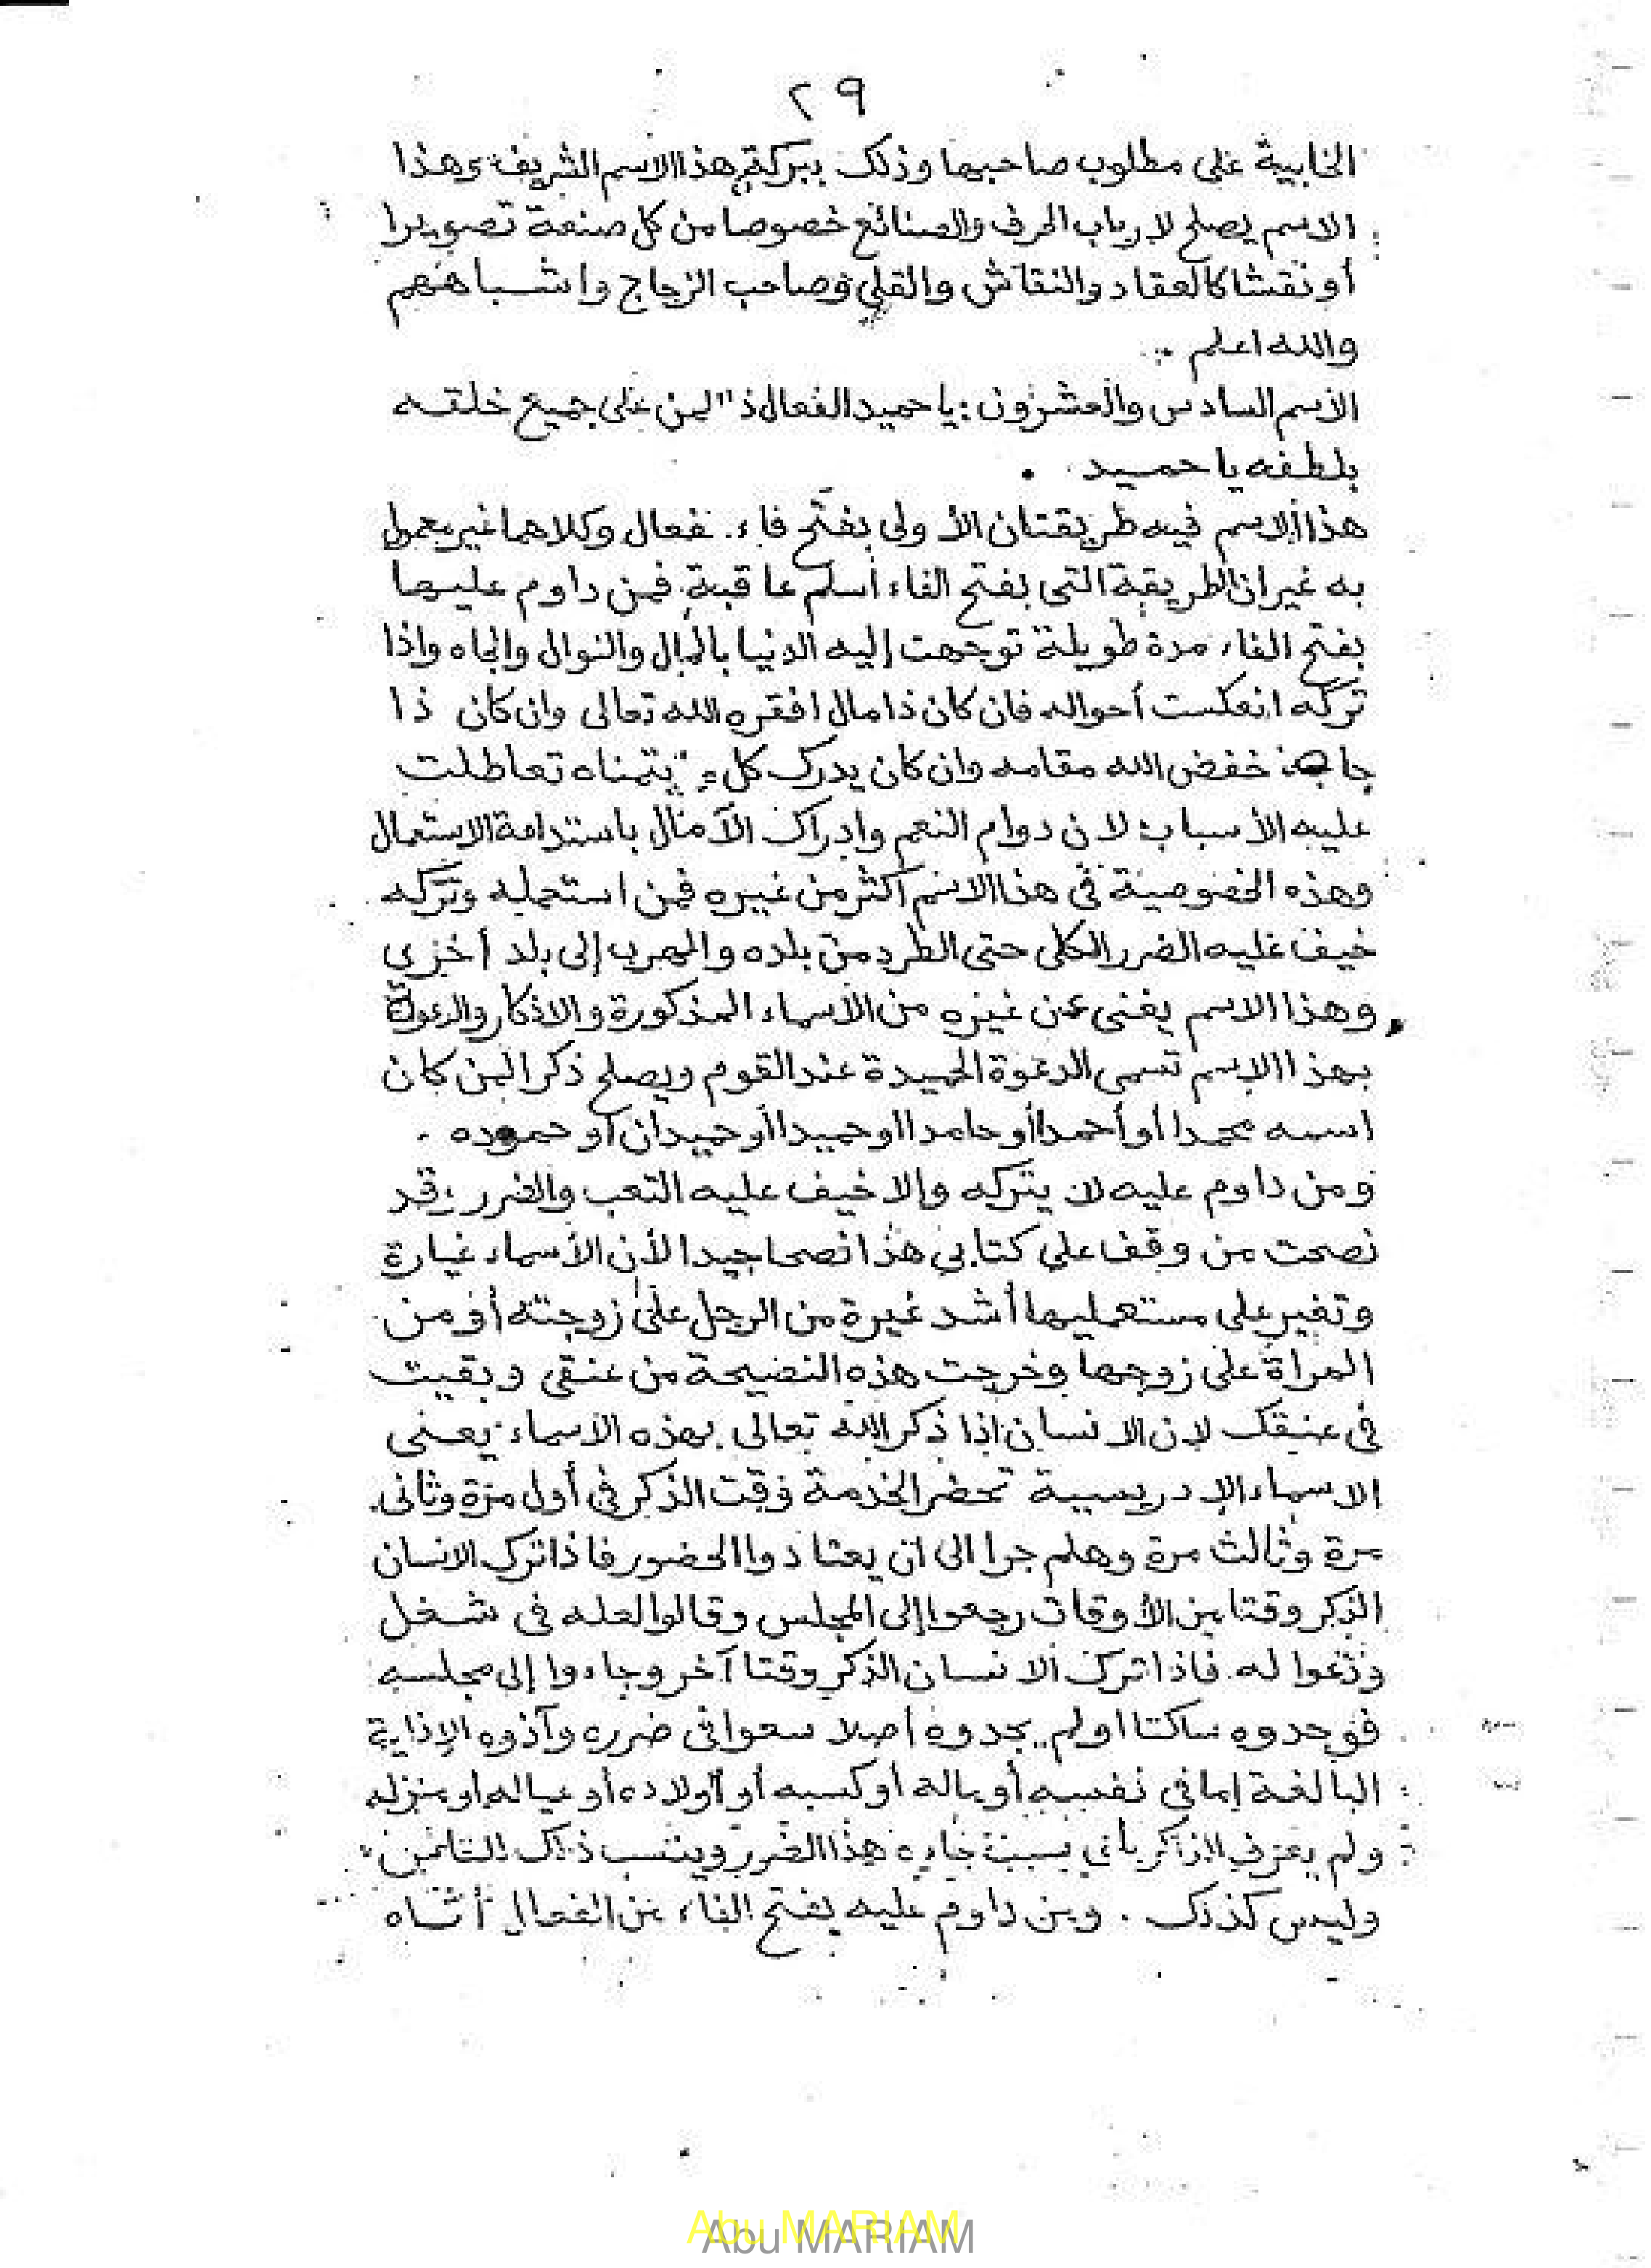 ٢٩
الخابية على مطلوب صاحبها وذلك ببركة هذا الاسم الشريف وهذا
الاسم يصلح لارباب الحرف والصنائع خصوصا من كل صنعة تصويرا
أو نقشا كالعقاد والنقاش والقلي وصاحب الزجاج واشباههم
والله اعلم .
الاسم السادس والعشرون : يا حميد الفعال ذا المن على جميع خلقه
بلطفه يا حميد .
هذا الاسم فيه طريقتان الأولى بفتح فاء . فعال وكلاهما غير معمول
به غير ان الطريقة التى بفتح الفاء أسلم عاقبة فمن داوم عليها
بفتح الفاء مدة طويلة توجهت إليه الدنيا بالمال والنوال والجاه واذا
تركه انعكست أحواله فان كان ذا مال افقره الله تعالى وان كان ذا
جاه خفض الله مقامه وان كان يدرك كل يتمناه تعاطلت
عليه الأسباب لان دوام النعم وادراك الآمال باستدامة الاستعمال
وهذه الخصوصية فى هذا الاسم أكثر من غيره فمن استعمله وتركه
خيف عليه الضرر الكلى حتى الطرد من بلده والهرب إلى بلد أخرى
وهذا الاسم يغنى عن غيره من الأسماء المذكورة والاذكار والدعوة
بهذا الاسم تسمى الدعوة الحميدة عند القوم ويصلح ذكرا لمن كان
اسمه محمدا أو أحمدا أو حامدا او حميدا أو حميدان أو حموده .
ومن داوم عليه لا يتركه وإلا خيف عليه التعب والضرر ؛ قد
نصحت من وقف على كتابي هذا نصحا جيدا لأن الأسماء غيارة
وتغير على مستعمليها أشد غيرة من الرجل على زوجته أو من
المراة على زوجها وخرجت هذه النصيحة من عنقى وبقيت
فى عنقك لان الانسان اذا ذكر الله تعالى بهذه الاسماء يعنى
الاسماء الإدريسية تحضر الخدمة وقت الذكر فى أول مرة وثانى
مرة وثالث مرة وهلم جرا الى ان يعتادوا الحضور فاذا ترك الانسان
الذكر وقتا من الأوقات رجعوا إلى المجلس وقالوا لعله فى شغل
ودعوا له فاذا ترك الانسان الذكر وقتا آخر وجاءوا إلى مجلسه
فوجدوه ساكتا او لم يجدوه أصلا سعوا فى ضرره وآذوه الإذاية
البالغة إما فى نفسه أو ماله أو كسبه أو أولاده أو عياله أو منزله
ولم يعرف الذاكر بأي سبب جاءه هذا الضرر وينسب ذلك
وليس كذلك . ومن داوم عليه بفتح الفاء من الفعال أتاه
Abu MARIAM